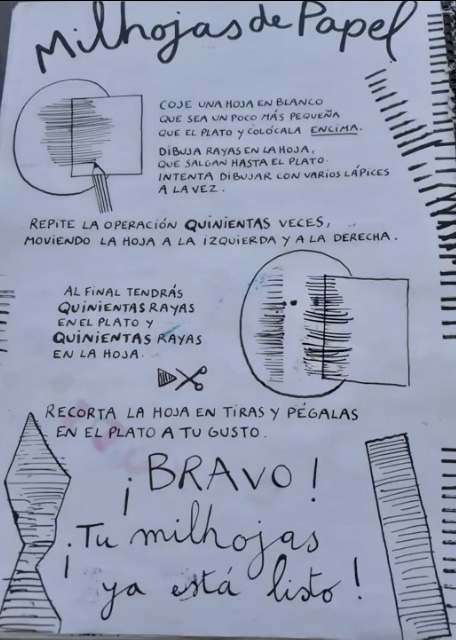 Milhojas de Papel
COJE UNA HOJA EN BLANCO
QUE SEA UN POCO MÁS PEQUEÑA
QUE EL PLATO Y COLÓCALA ENCIMA.
DIBUJA RAYAS EN LA HOJA,
QUE SALGAN HASTA EL PLATO.
INTENTA DIBUJAR CON VARIOS LÁPICES
A LA VEZ.
REPITE LA OPERACIÓN QUINIENTAS VECES,
MOVIENDO LA HOJA A LA IZQUIERDA Y A LA DERECHA.
AL FINAL TENDRÁS
QUINIENTAS RAYAS
EN EL PLATO Y
QUINIENTAS RAYAS
EN LA HOJA.
RECORTA LA HOJA EN TIRAS Y PÉGALAS
EN EL PLATO A TU GUSTO.
¡BRAVO!
¡Tu milhojas
ya está listo!